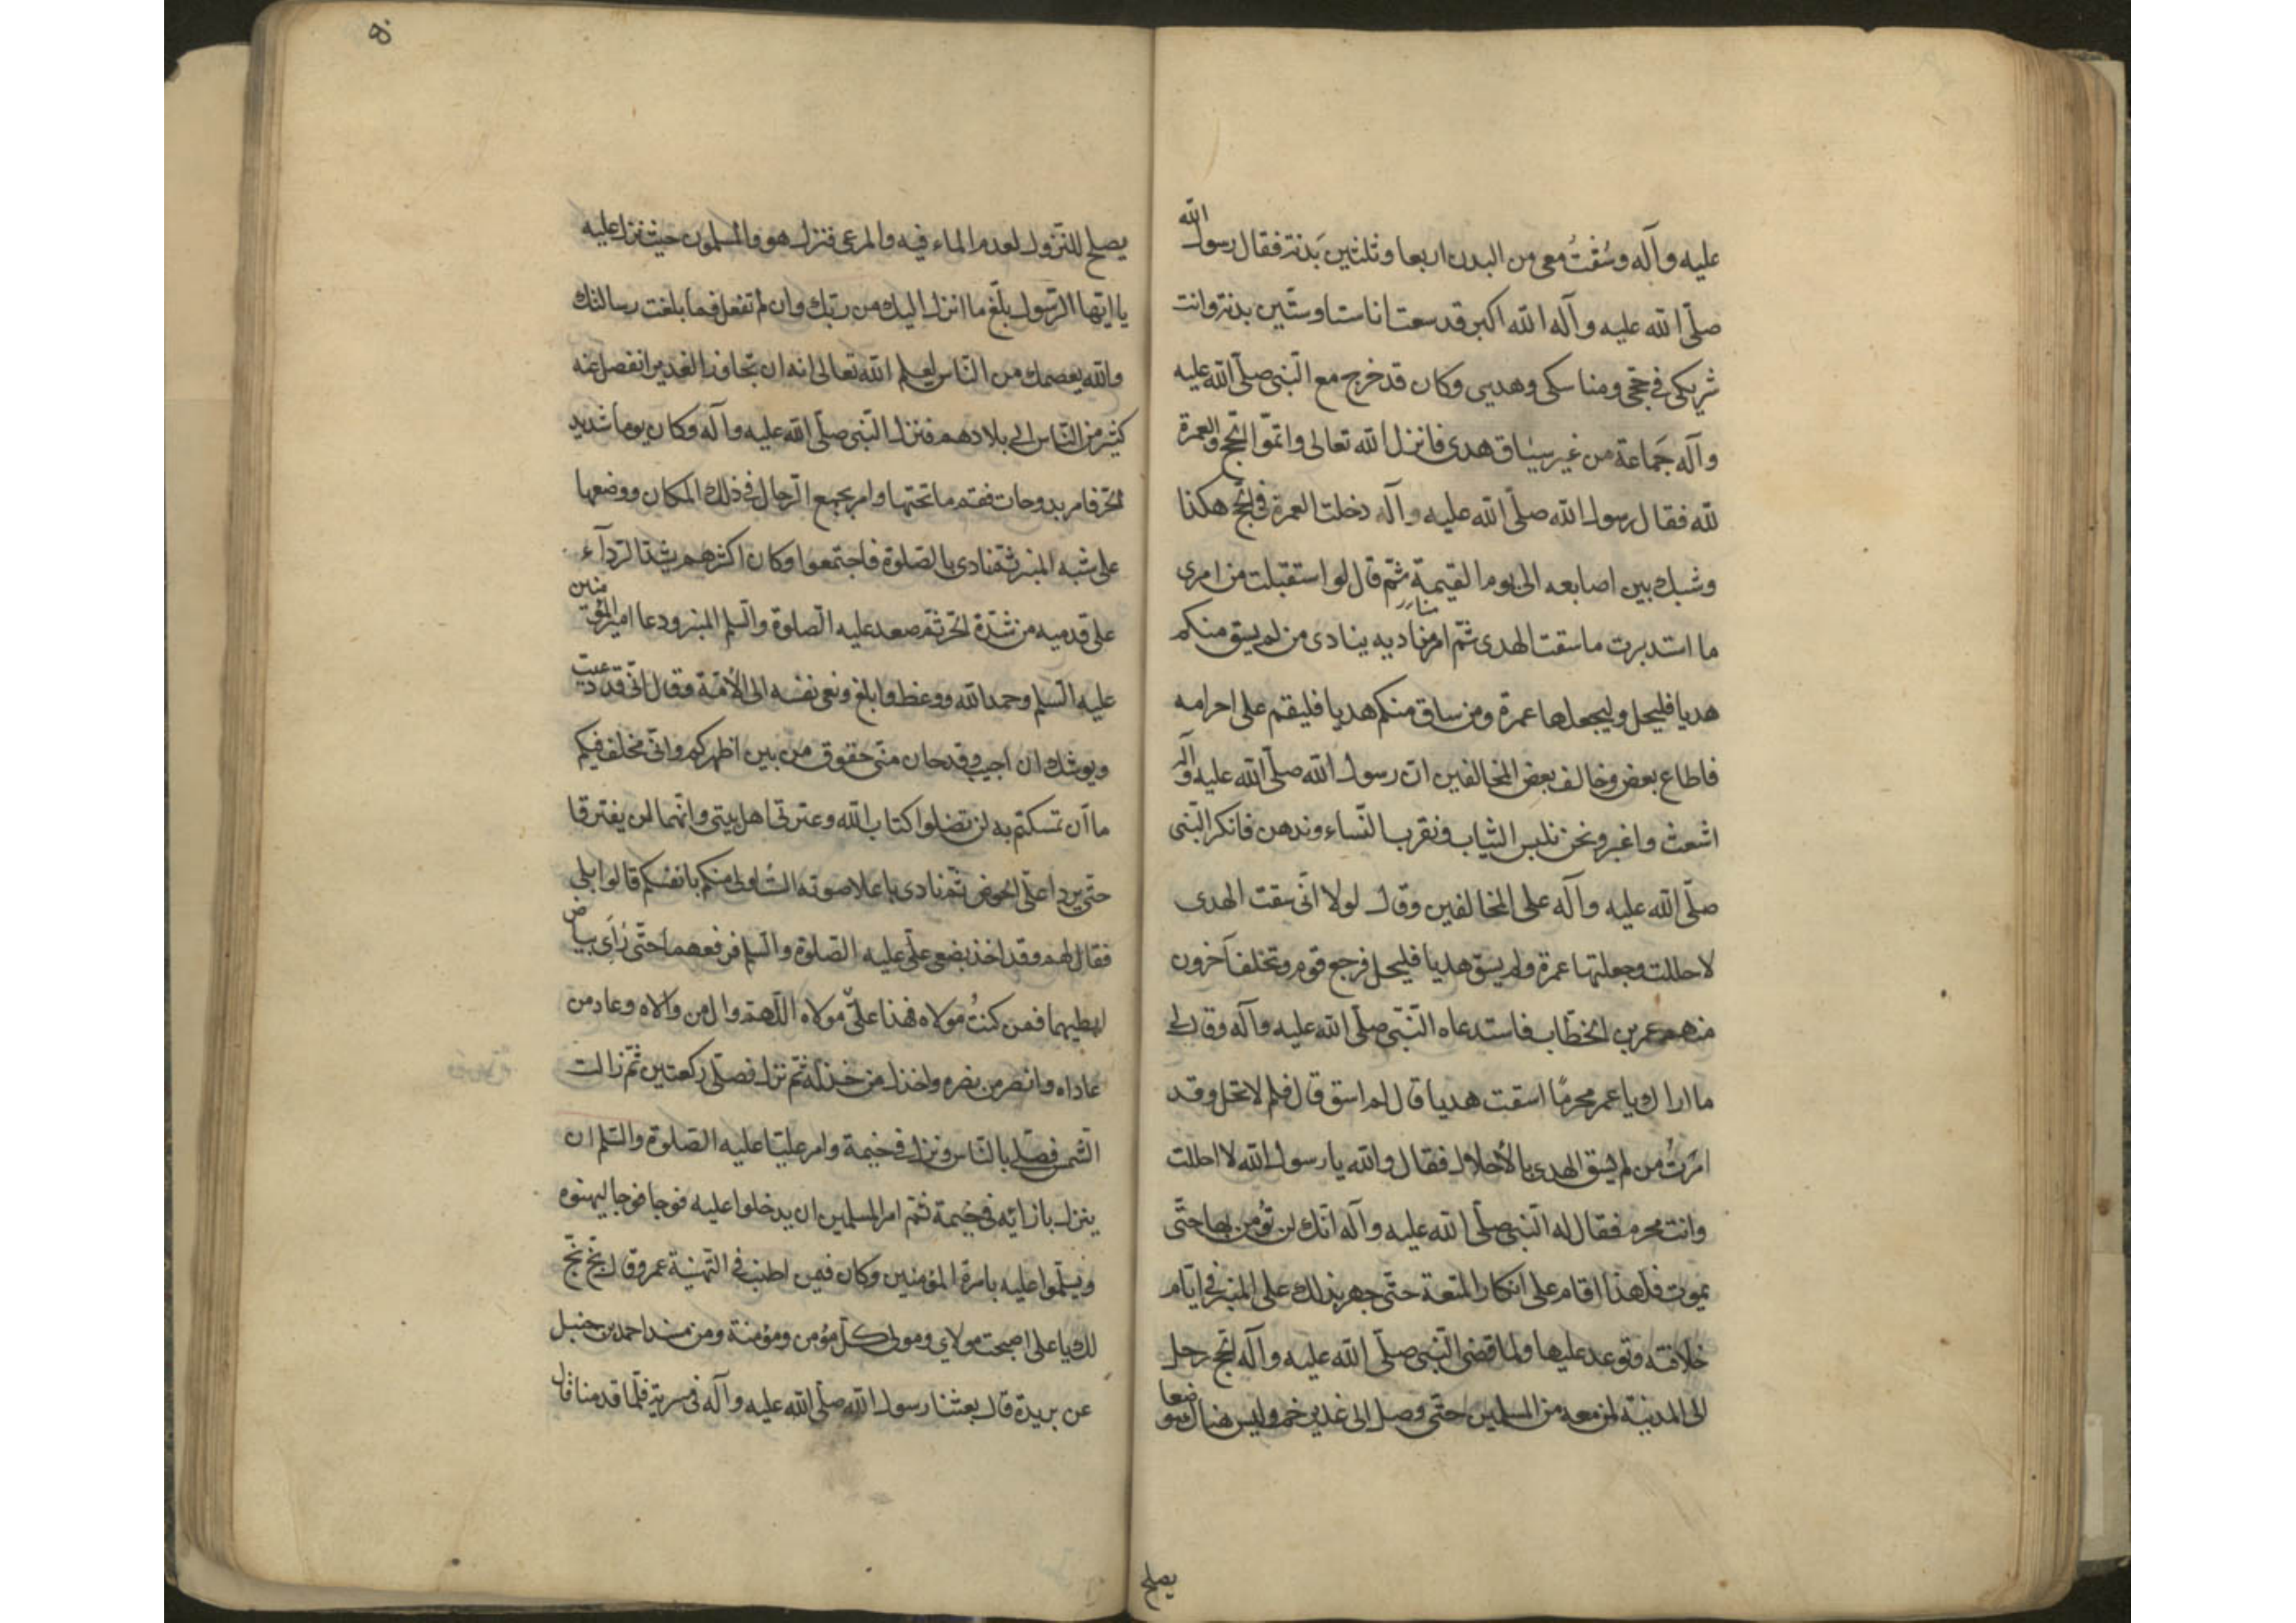 عليه وآله وسُقْتُ معى من البدن اربعا وثلثين بَدنة فقال رسول الله
صلّى الله عليه وآله الله اكبر قد سقت انا ستا وستّين بدنة وانت
شريكى فى حجّى ومناسكى وهديى وكان قد خرج مع النّبى صلّى الله عليه
وآله جَماعة من غير سياق هدى فانزل الله تعالى واتمّوا الحجّ والعمرة
لله فقال رسول الله صلّى الله عليه وآله دخلت العمرة فى الحجّ هكذا
وشبك بين اصابعه الى يوم القيمة ثمّ قال لو استقبلت من امرى
ما استدبرت ما سقت الهدى ثمّ امر مناديه ينادى من لم يسق منكم
هديا فليحل وليجعلها عمرة ومن ساق منكم هديا فليقم على احرامه
فاطاع بعض وخالف بعض المخالفين انّ رسول الله صلّى الله عليه وآله
اشعث واغبر ونحن نلبس الثياب ونقرب النّساء وندهن فانكر النّبى
صلّى الله عليه وآله على المخالفين وقال لولا انّى سقت الهدى
لاحللت وجعلتها عمرة ولم يسق هديا فليحل فرجع قوم وتخلف آخرون
منهم عمر بن الخطّاب فاستدعاه النّبّى صلّى الله عليه وآله وقال لى
ما اراك يا عمر محرمًا اسقت هديا قال لم اسق قال فلم لا تحل وقد
امَرتُ من لم يسق الهدى بالأحلال فقال والله يا رسول الله لا احللت
وانت محرم فقال له النّبى صلّى الله عليه وآله انّك لن تؤمن بها حتّى
يموت فلهذا اقام على انكار المتعة حتّى جهر بذلك على المنبر فى ايّام
خلافته وتوعد عليها ولما قضى النّبى صلّى الله عليه وآله الحجّ رحل
الى المدينة بمن معه من المسلمين حتّى وصل الى غدير خم وليس هناك موضعا
يصلح
يصلح للنّزول لعدم الماء فيه والمرعى فنزل هو والمسلمون حيث نزل عليه
يا ايّها الرّسول بلّغ ما انزل اليك من ربّك وان لم تفعل فما بلغت رسالتك
والله يعصمك من النّاس لعلم الله تعالى انه ان تجاوز الغدير انفصل عنه
كثير من النّاس الى بلادهم فنزل النّبى صلّى الله عليه وآله وكان يوما شديد
الحرّ فامر بدوحات فقم ما تحتها وامر بجمع الرّحال فى ذلك المكان ووضعها
على شبه المنبر ثمّ نادى بالصّلوة فاجتمعوا وكان اكثرهم يشدّ الرّدآء
على قدميه من شدّة الحرّ ثمّ صعد عليه الصّلوة والسّلم المنبر ودعا امير المؤمنين
عليه السّلم وحمد الله ووعظ وابلغ ونعى نفسه الى الأمّة وقال انّى قد دعيت
ويوشك ان اجيب وقد حان منّى حقوق من بين اظهركم وانّى مخلف فيكم
ما ان تمسكتم به لن تضلوا كتاب الله وعترتى اهل بيتى وانّهما لن يفترقا
حتّى يردا علّى الحوض ثمّ نادى باعلا صوته الست اولى منكم بانفسكم قالوا بلى
فقال لهم وقد اخذ بضبعى علّى عليه الصّلوة والسّلم فرفعهما حتّى رُأى بياض
ابطيهما فمن كنتُ مولاه فهذا علىّ مولاه اللّهمّ وال من والاه وعاد من
عاداه وانصر من نصره واخذل من خذله ثمّ نزل فصلّى ركعتين ثمّ زالت
الشّمس فصلّى بالنّاس ونزل فى خيمة وامر عليّا عليه الصّلوة والسّلم ان
ينزل بازائه فى خيمة ثمّ امر المسلمين ان يدخلوا عليه فوجا فوجا ليهنوه
ويسلّموا عليه بامرة المؤمنين وكان فيمن اطنب فى التّهنية عمر وقال بخّ بخّ
لك يا على اصبحت مولاي ومولى كلّ مؤمن ومؤمنة ومن مسند احمد بن حنبل
عن بريدة قال بعثنا رسول الله صلّى الله عليه وآله فى سرية فلمّا قدمنا قال